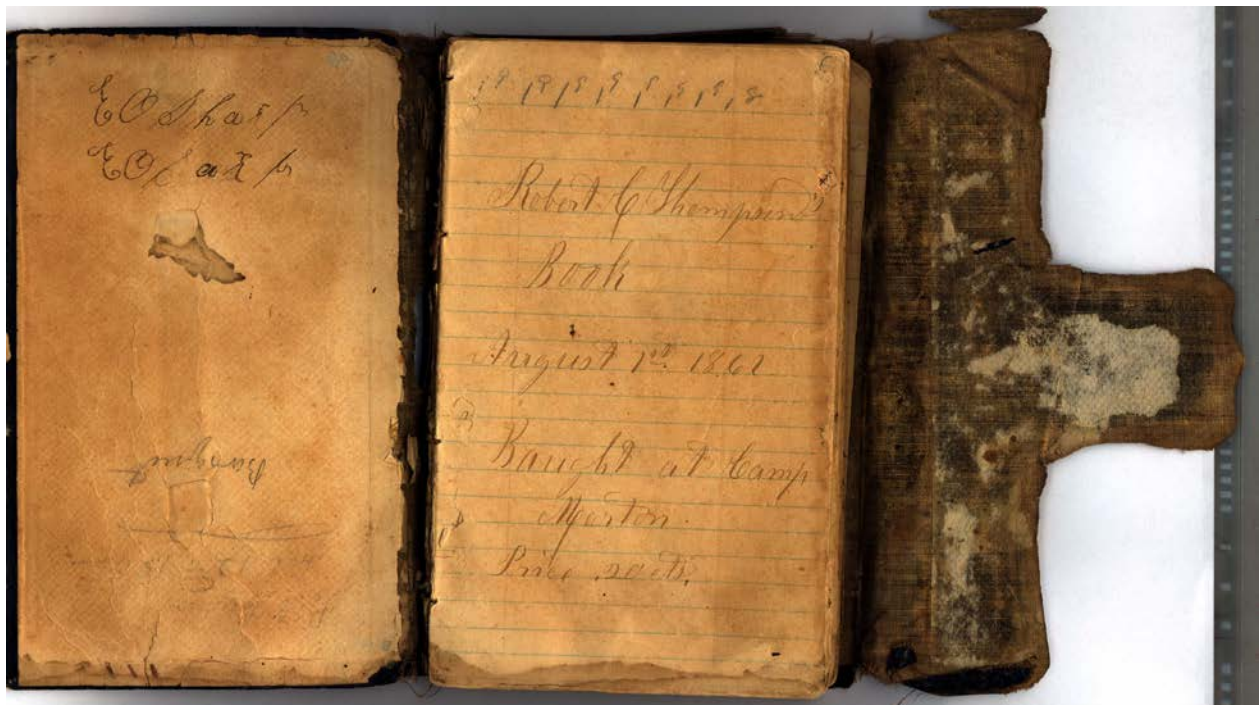 E O Sharp
E O Sharp
Robert C Thompson's
Book
August 1st 1862
Baught at Camp
Morton
Price 20 cts.